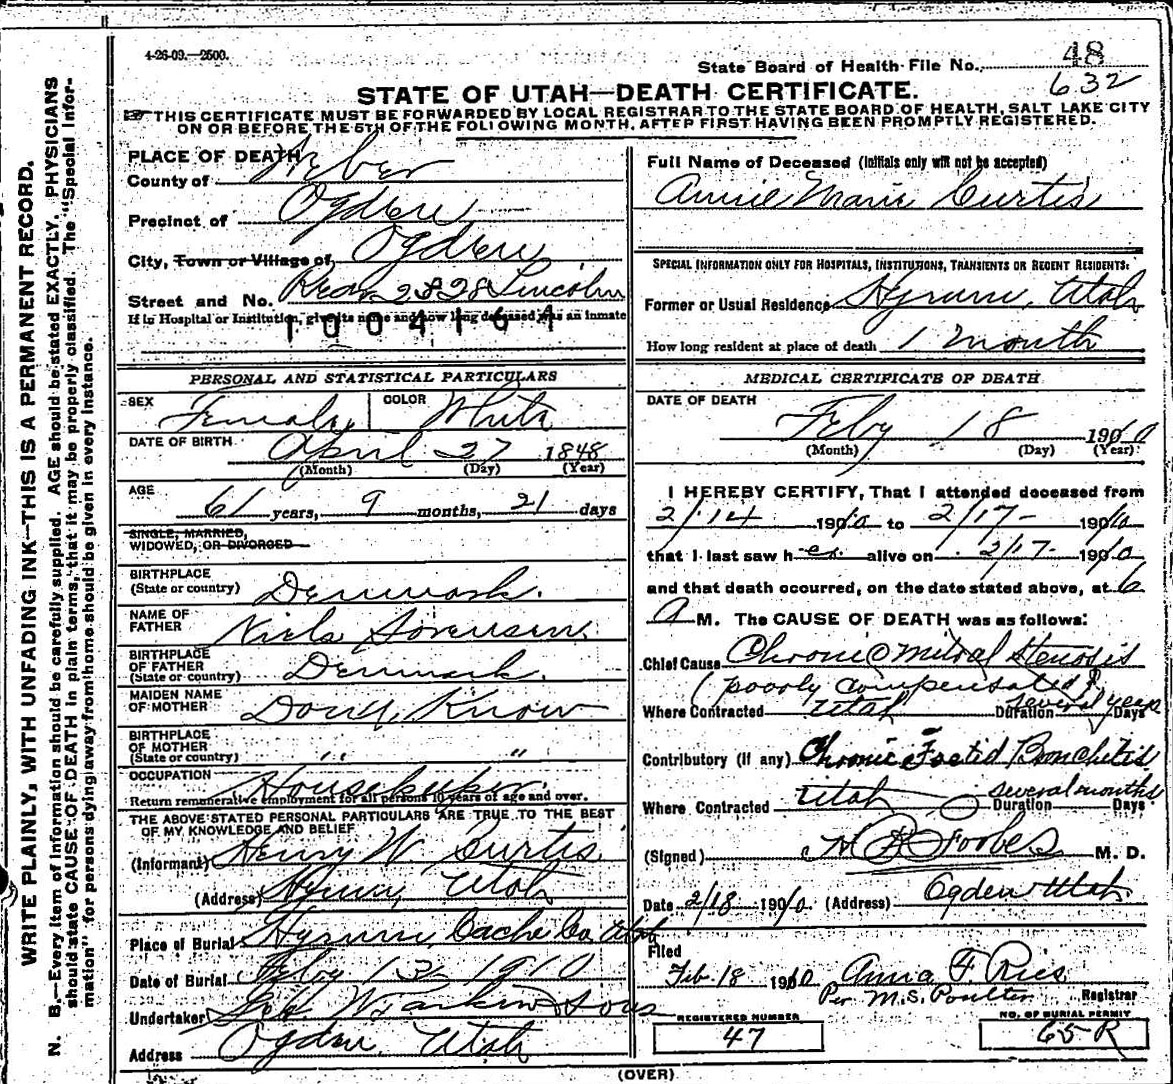 4-26-09.—2500.
48
State Board of Health File No.
632
STATE OF UTAH—DEATH CERTIFICATE.
THIS CERTIFICATE MUST BE FORWARDED BY LOCAL REGISTRAR TO THE STATE BOARD OF HEALTH, SALT LAKE CITY
ON OR BEFORE THE 5TH OF THE FOLLOWING MONTH, AFTER FIRST HAVING BEEN PROMPTLY REGISTERED.
WRITE PLAINLY, WITH UNFADING INK—THIS IS A PERMANENT RECORD.
N. B.—Every item of information should be carefully supplied. AGE should be stated EXACTLY. PHYSICIANS
should state CAUSE OF DEATH in plain terms, that it may be properly classified. The "Special Infor-
mation" for persons dying away from home should be given in every instance.
PLACE OF DEATH
County of Weber
Precinct of Ogden
City, Town or Village of Ogden
Street and No. Rear 2828 Lincoln
If in Hospital or Institution, give its name and how long deceased was an inmate
1004164
PERSONAL AND STATISTICAL PARTICULARS
SEX Female COLOR White
DATE OF BIRTH April 27 1848
(Month) (Day) (Year)
AGE
61 years, 9 months, 21 days
SINGLE, MARRIED,
WIDOWED, OR DIVORCED
BIRTHPLACE
(State or country) Denmark.
NAME OF
FATHER Niels Sorensen.
BIRTHPLACE
OF FATHER
(State or country) Denmark.
MAIDEN NAME
OF MOTHER Dont Know
BIRTHPLACE
OF MOTHER
(State or country) " "
OCCUPATION Housekeeper.
Return remunerative employment for all persons 10 years of age and over.
THE ABOVE STATED PERSONAL PARTICULARS ARE TRUE TO THE BEST
OF MY KNOWLEDGE AND BELIEF
(Informant) Henry W Curtis
(Address) Hyrum, Utah
Place of Burial Hyrum, Cache Co, Utah
Date of Burial Feby 1910
Undertaker W Larkin & Sons
Address Ogden, Utah
Full Name of Deceased (Initials only will not be accepted)
Annie Marie Curtis
SPECIAL INFORMATION ONLY FOR HOSPITALS, INSTITUTIONS, TRANSIENTS OR RECENT RESIDENTS:
Former or Usual Residence Hyrum, Utah
How long resident at place of death 1 Month
MEDICAL CERTIFICATE OF DEATH
DATE OF DEATH
Feby 18 1910
(Month) (Day) (Year)
I HEREBY CERTIFY, That I attended deceased from
2/14 1910 to 2/17 - 1910
that I last saw her alive on 2/17 - 1910
and that death occurred, on the date stated above, at 6
A M. The CAUSE OF DEATH was as follows:
Chief Cause Chronic Mitral Stenosis
(poorly compensated)
Where Contracted Utah Duration several years Days
Contributory (if any) Chronic Foetid Bronchitis
Where Contracted Utah Duration several months Days
(Signed) Foobes M. D.
Date 2/18 1910 (Address) Ogden Utah
Filed
Feb. 18 1910 Anna F. Ries
Per M.S. Poulter Registrar
REGISTERED NUMBER
47
NO. OF BURIAL PERMIT
65 R
(OVER)